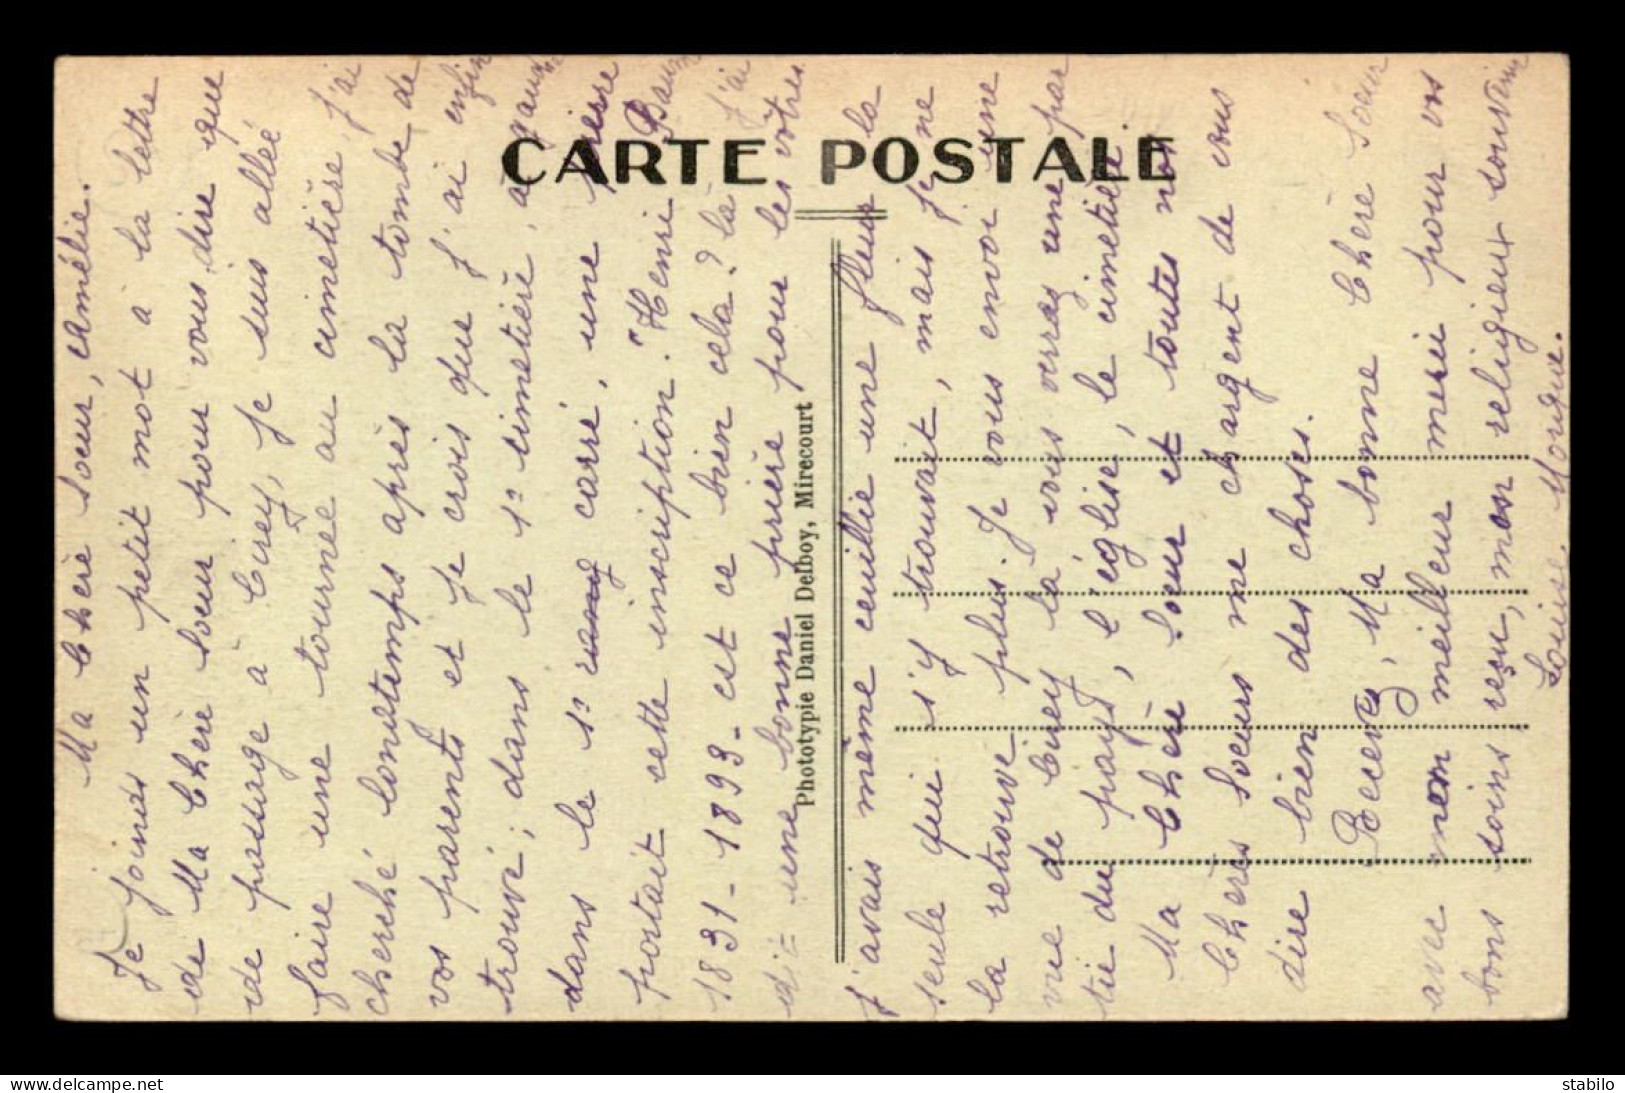 CARTE POSTALE
Phototypie Daniel Delboy, Mirecourt
Ma Chère Soeur, Amélie.
Je joinds un petit mot à la lettre
de Ma Chère Soeur pour vous dire que
de passage à Cirey, je suis allée
faire une tournée au cimetière j'ai
cherché longtemps après la tombe de
vos parents et je crois que j'ai enfin
trouvé; dans le 1r cimetière, à gauche
dans le 1r rang carré, une pierre
portait cette inscription. "Henri Baum
1831-1893- est ce bien cela? là j'ai
dit une bonne prière pour les vôtres
j'avais même cueillie une fleur la
seule qui s'y trouvait, mais je ne
la retrouve plus. Je vous envoi une
vue de Cirey là vous verrez une par
tie du pays, l'église, le cimetière.
Ma Chère Soeur et toutes nos
Chères Soeurs me chargent de vous
dire bien des choses.
Recevez, Ma bonne Chère Soeur
avec mon meilleur merci pour vos
bons soins reçu, mon religieux souvenir
Louise. Morque.
www.delcampe.net
stabilo